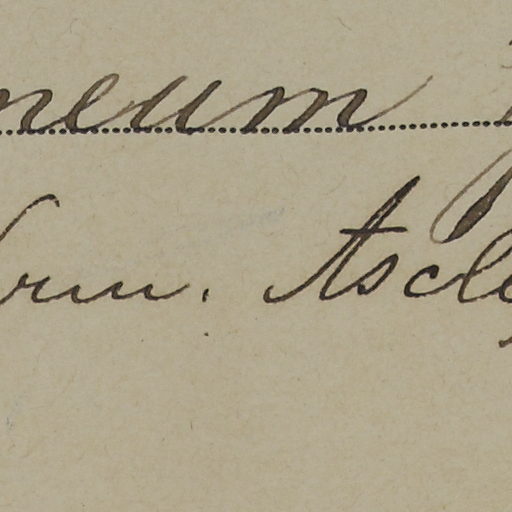 neum
rum. Ascle